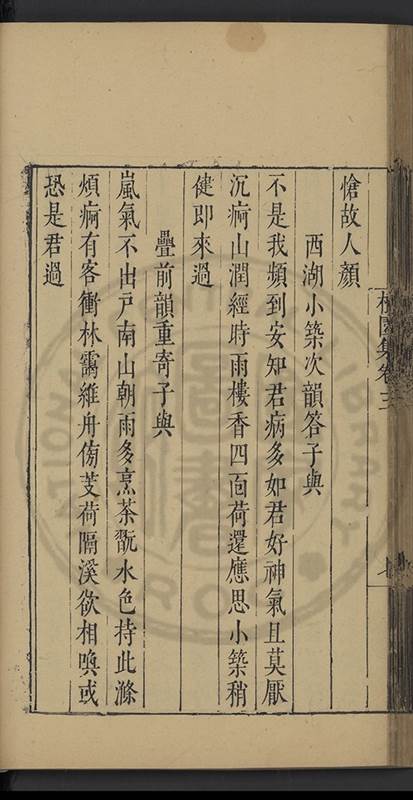 愴故人顏
西湖小築次韻答子與
不是我頻到安知君病多如君好神氣且莫厭
沉痾山澗經時雨樓香四面荷還應思小築稍
健即來過
疊前韻重寄子與
嵐氣不出戶南山朝雨多烹茶翫水色持此滌
煩痾有客衝林靄維舟傍芰荷隔溪欲相喚或
恐是君過
集卷三